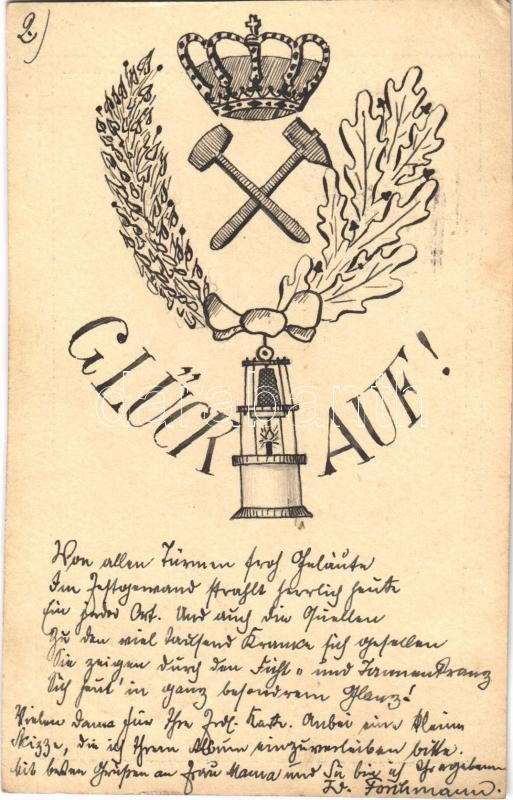 2.)
GLÜCK AUF!
darabanth
Von allen Türmen froh Geläute
Im Festgewand strahlt herrlich heute
Ein jeder Ort. Und auch die Quellen
Zu den viel tausend Kranke sich gesellen
Sie zeigen durch den Ficht- und Tannenkranz
Sich heut' in ganz besondrem Glanz!
Vielen Dank für Ihre frdl. Karte. Anbei eine kleine
Skizze, die ich Ihrem Album einzuverleiben bitte.
Mit besten Grüßen an Frau Mama und Sie bin ich Ihr ergebener
Ed. Forchmann.